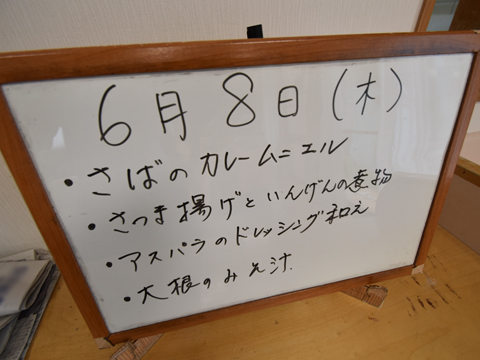 6月8日(木)
・さばのカレームニエル
・さつま揚げといんげんの煮物
・アスパラのドレッシング和え
・大根のみそ汁